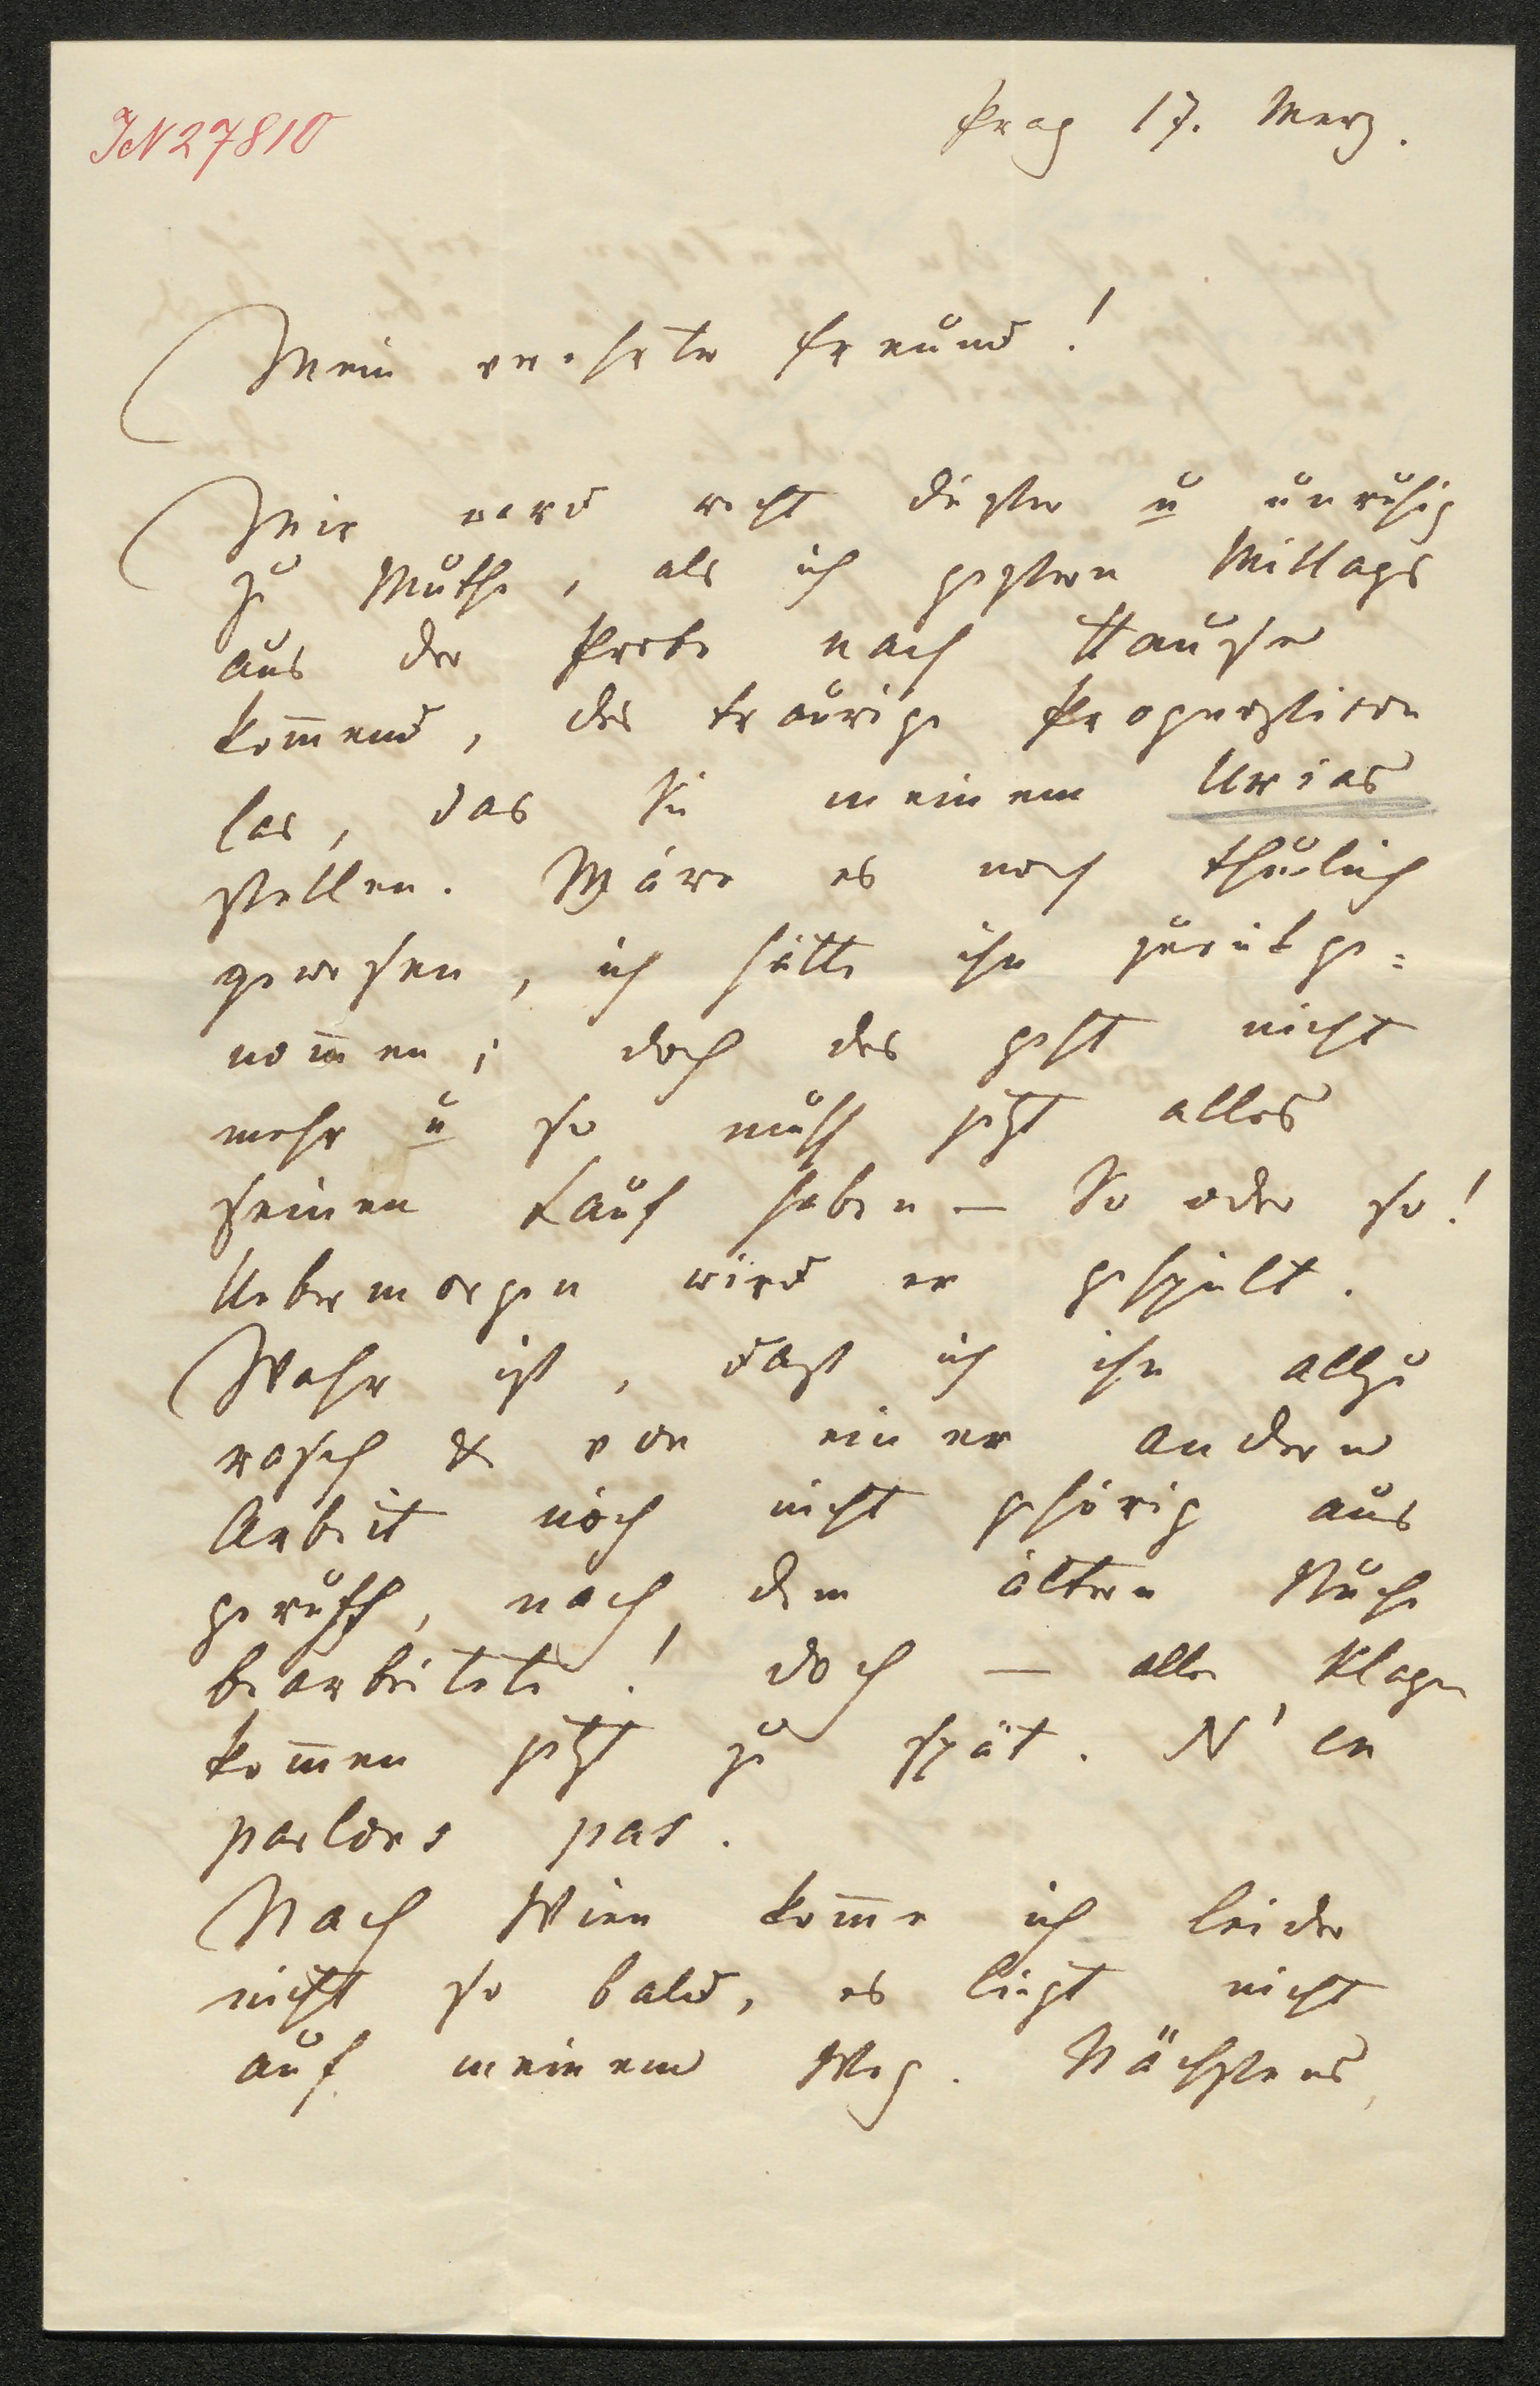 IN 27810
Prag 17. Merz.
Mein verehrter Freund!
Mir ward recht düster u unruhig
zu Muthe, als ich gestern Mittags
aus der Probe nach Hause
kom̄end, das traurige Prognosticon
las, das Sie meinem Urias
stellen. Wäre es noch thunlich
gewesen, ich hätte ihn zurückge=
nom̄en; doch das geht nicht
mehr u so muß jetzt alles
seinen Lauf haben — So oder so!
Uebermorgen wird er gespielt.
Wahr ist, daß ich ihn allzu
rasch & von einer andern
Arbeit noch nicht gehörig aus
geruht, nach dem ältern Stücke
bearbeitete! doch — alle Klagen
kom̄en jetzt zu spät. N'en
parlons pas.
Nach Wien kom̄e ich leider
nicht so bald, es liegt nicht
auf meinem Weg. Nächstens,